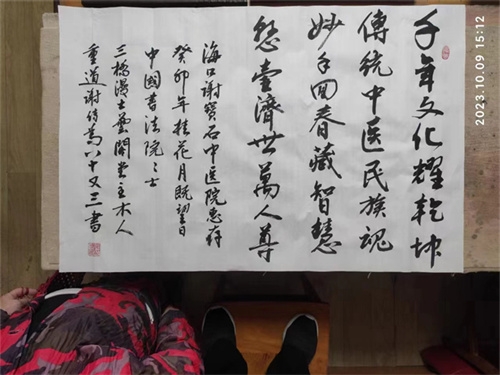 千年文化耀乾坤
傳統中医民族魂
妙手回春藏智慧
悬壶濟世萬人尊
海口谢寶石中医院惠存
癸卯年桂花月既望日
中國書法院士
三橋漫士藝開堂主木人
重道谢传为八十又三書
2023.10.09 15:12